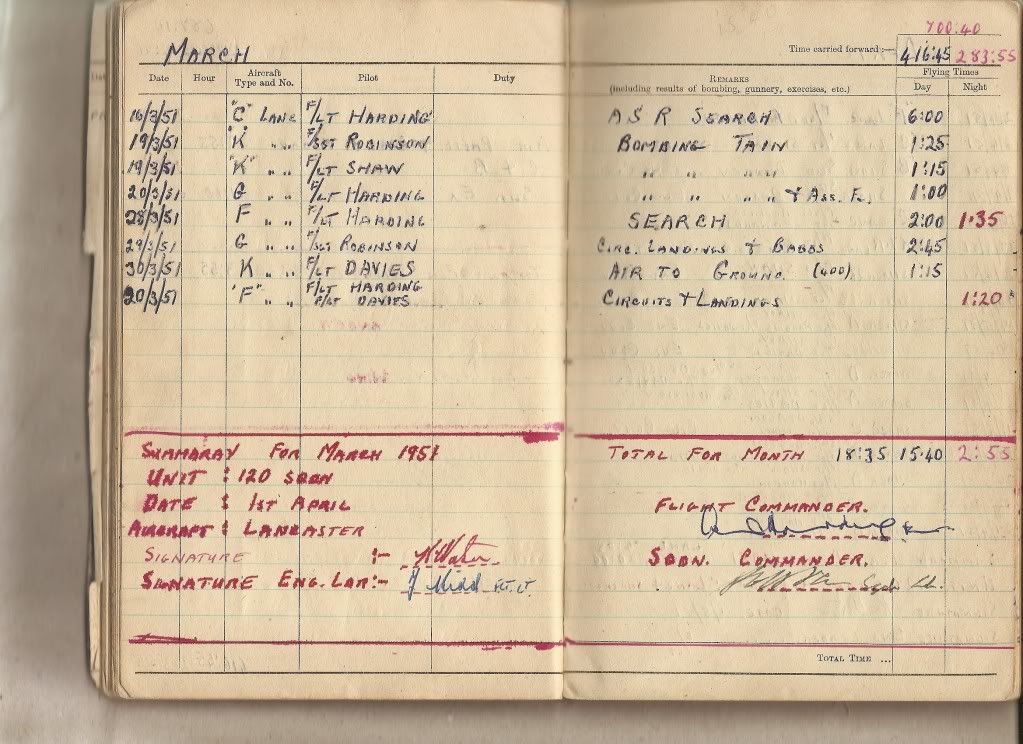 700:40
MARCH
Time carried forward :— 416:45 283:55
Date Hour Aircraft Type and No. Pilot Duty REMARKS (including results of bombing, gunnery, exercises, etc.) Flying Times Day Night
16/3/51 "C" LANC F/LT HARDING A S R SEARCH 6:00
19/3/51 "K" " " F/SGT ROBINSON BOMBING TAIN 1:25
19/3/51 "K" " " F/LT SHAW " " " " 1:15
20/3/51 G " " F/LT HARDING " " " " & ASS. F. 1:00
28/3/51 F " " F/LT HARDING SEARCH 2:00 1:35
29/3/51 G " " F/SGT ROBINSON CIRC. LANDINGS & BABBS 2:45
30/3/51 K " " F/LT DAVIES AIR TO GROUND (400) 1:15
20/3/51 "F" " " F/LT HARDING F/LT DAVIES CIRCUITS & LANDINGS 1:20
SUMMARAY FOR MARCH 1951 TOTAL FOR MONTH 18:35 15:40 2:55
UNIT : 120 SQDN
DATE : 1ST APRIL FLIGHT COMMANDER.
AIRCRAFT : LANCASTER
SIGNATURE :- SQDN. COMMANDER.
SIGNATURE ENG. LDR:- FLT. LT.
TOTAL TIME ...